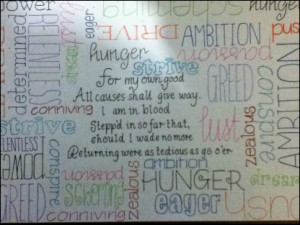 power
scheming
hunger
determined
RELENTLESS
lust
eager
DRIVE
AMBITION
push
hunger
passion
strive
GREED
conspire
AMBITION
For my own good
All causes shall give way.
I am in blood
Stepp'd in so far that,
should I wade no more
Returning were as tedious as go o'er
conniving
strive
conspire
RELENTLESS
power
GREED
passion
scheming
conniving
zealous
ambition
HUNGER
eager
lust
zealous
conspire
desire
push